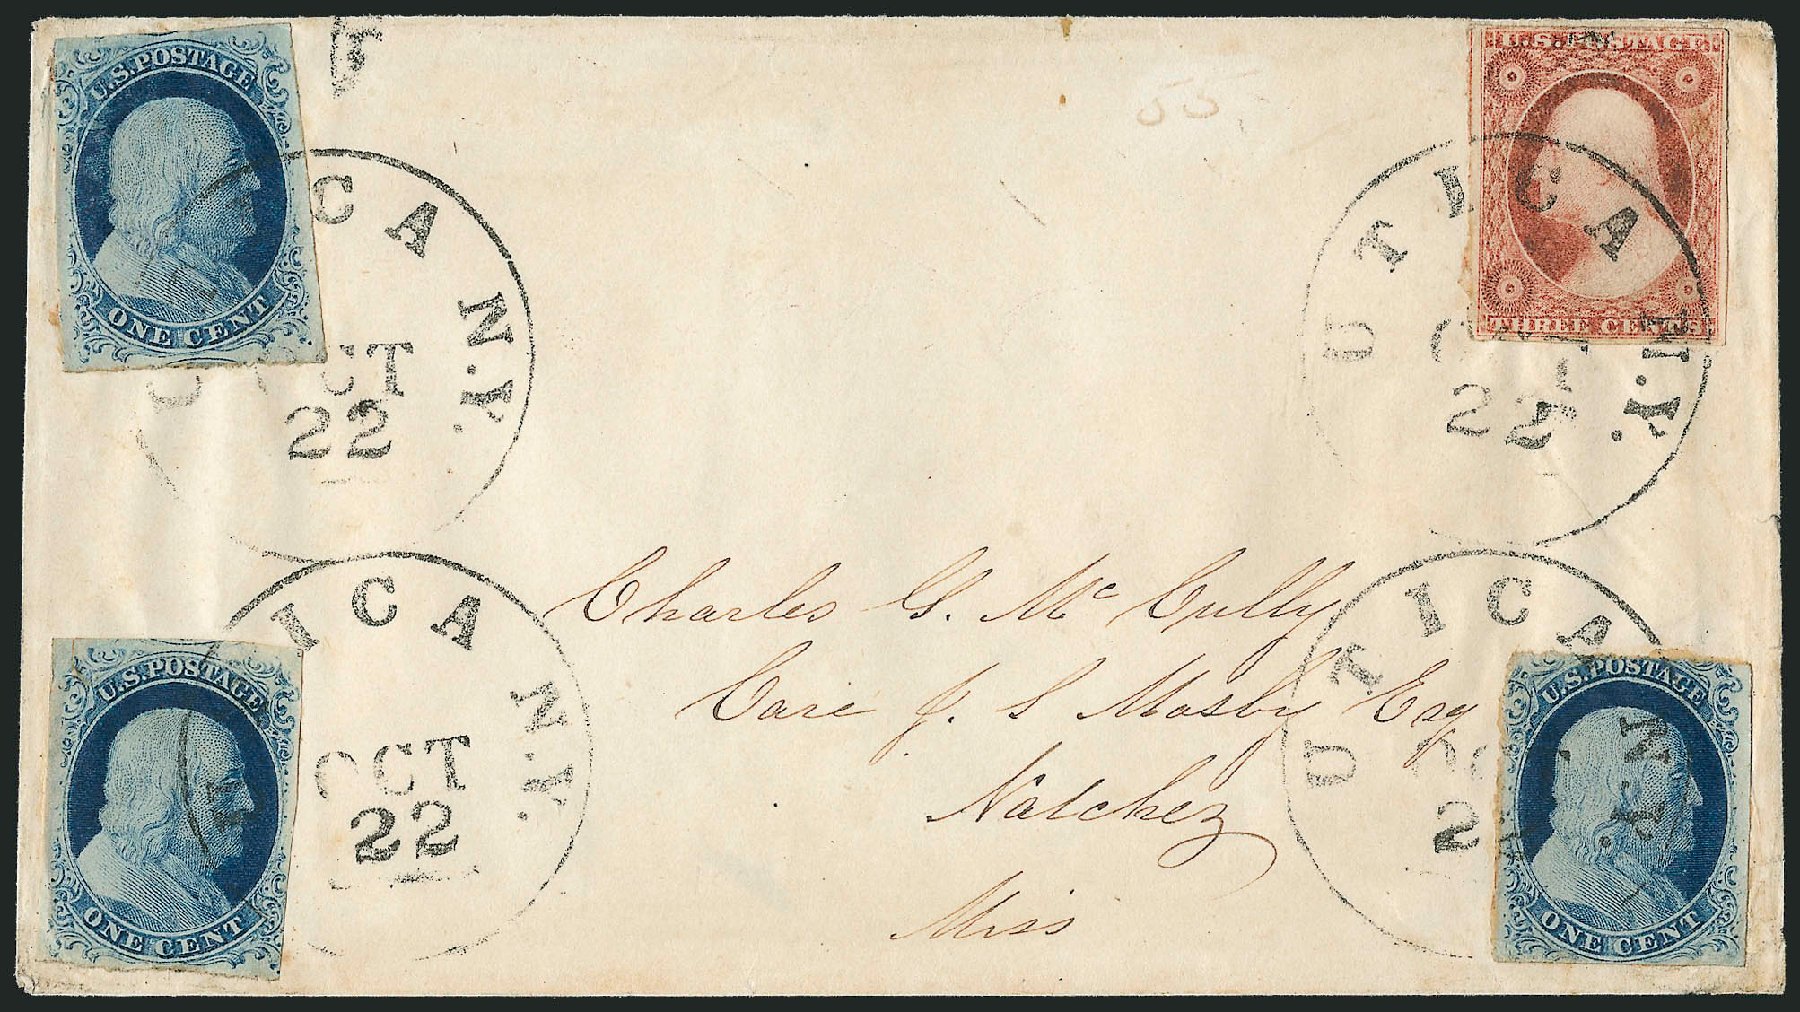 U.S. POSTAGE
ONE CENT
U.S. POSTAGE
THREE CENTS
ICA N.Y.
OCT
22
UTICA N.Y.
22
Charles G. Mc Cully
Care J. S Mosby Esq
Natchez
Miss
U.S. POSTAGE
ONE CENT
ICA N.Y.
OCT
22
UTICA N.Y.
2
U.S. POSTAGE
ONE CENT
55